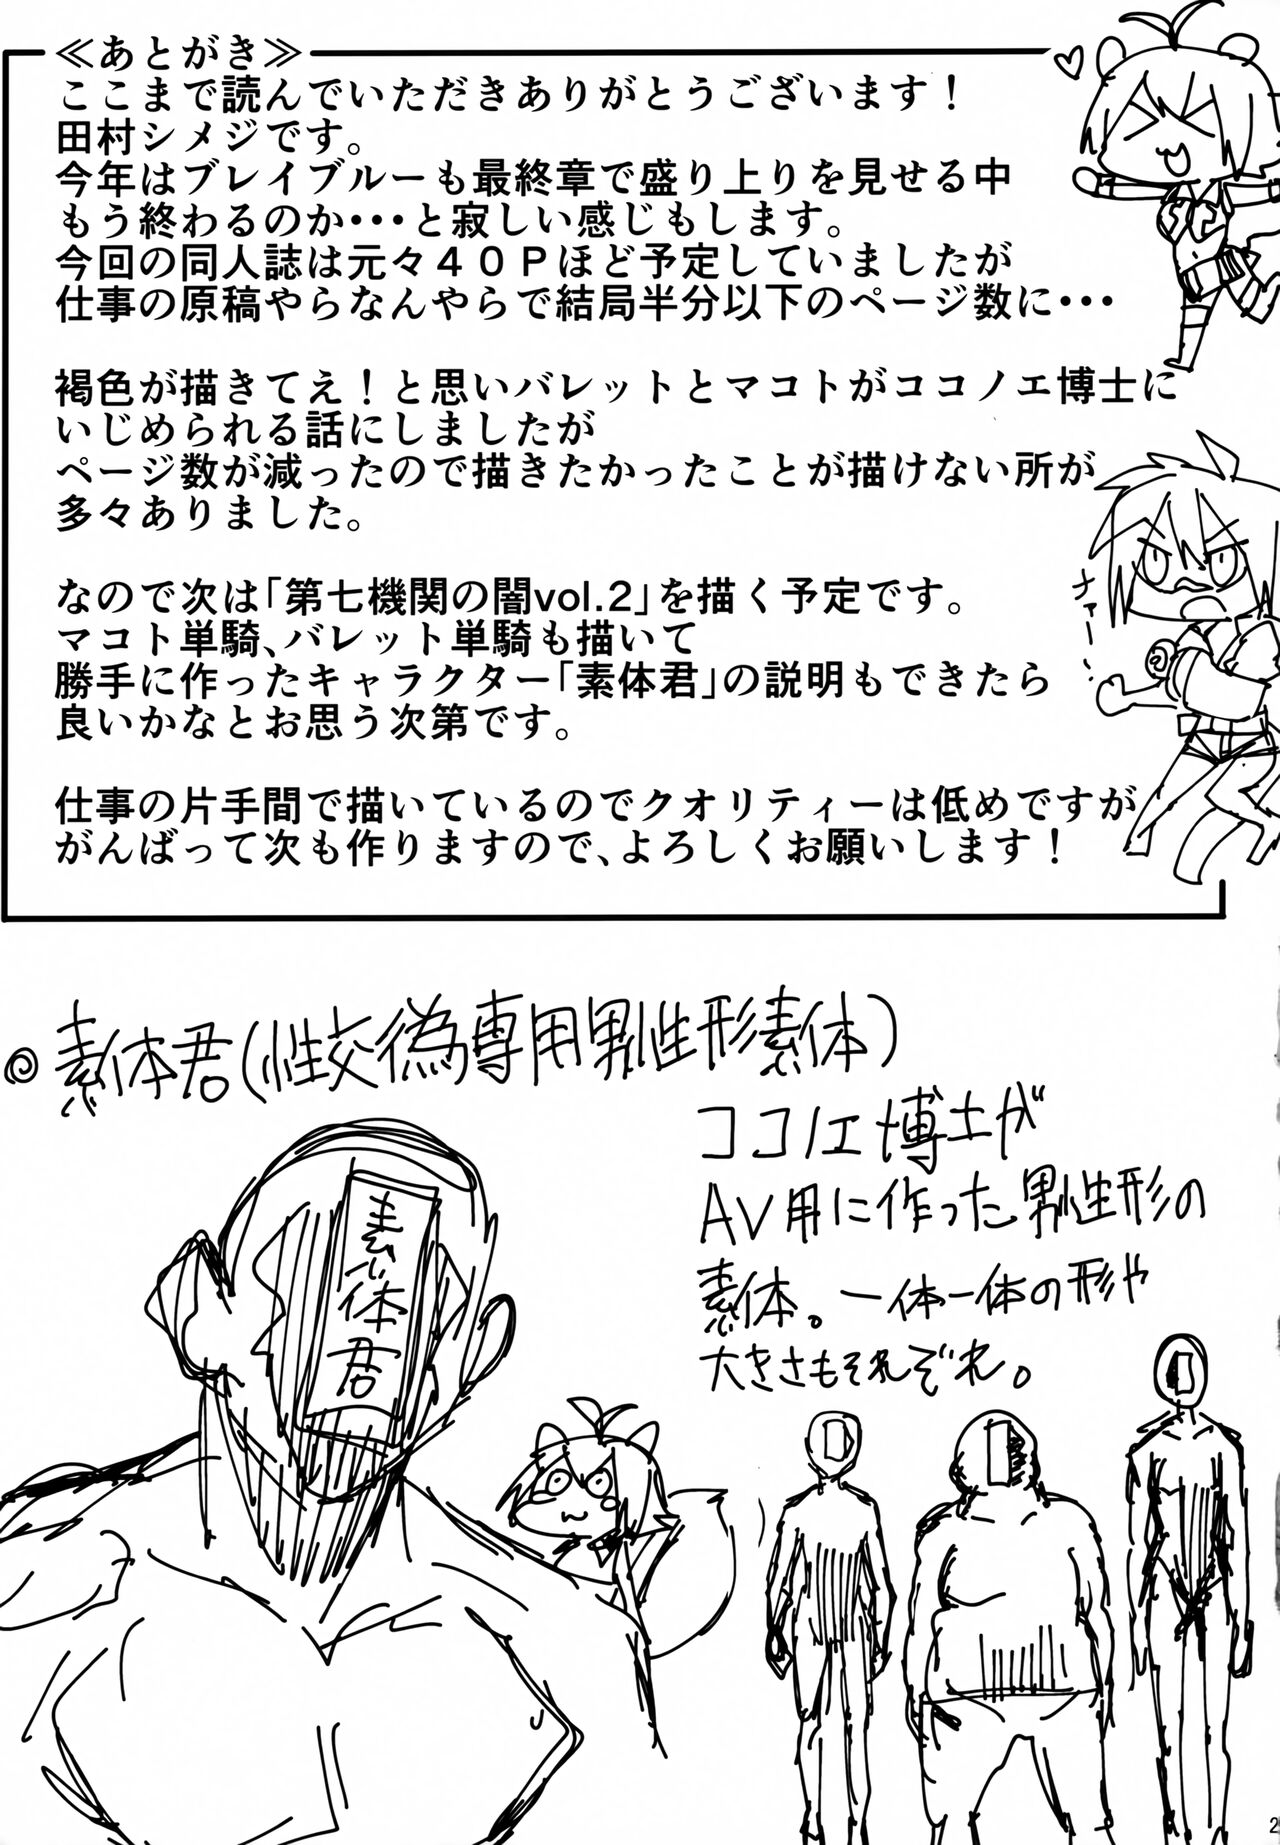 ≪あとがき≫
ここまで読んでいただきありがとうございます！
田村シメジです。
今年はブレイブルーも最終章で盛り上りを見せる中
もう終わるのか・・・と寂しい感じもします。
今回の同人誌は元々４０Ｐほど予定していましたが
仕事の原稿やらなんやらで結局半分以下のページ数に・・・
褐色が描きてえ！と思いバレットとマコトがココノエ博士に
いじめられる話にしましたが
ページ数が減ったので描きたかったことが描けない所が
多々ありました。
なので次は「第七機関の闇vol.2」を描く予定です。
マコト単騎、バレット単騎も描いて
勝手に作ったキャラクター「素体君」の説明もできたら
良いかなとお思う次第です。
仕事の片手間で描いているのでクオリティーは低めですが
がんばって次も作りますので、よろしくお願いします！
ナァー！
素体君（性交偽専用男性形素体）
ココノエ博士が
AV用に作った男性形の
素体。一体一体の形や
大きさもそれぞれ。
素体君
2